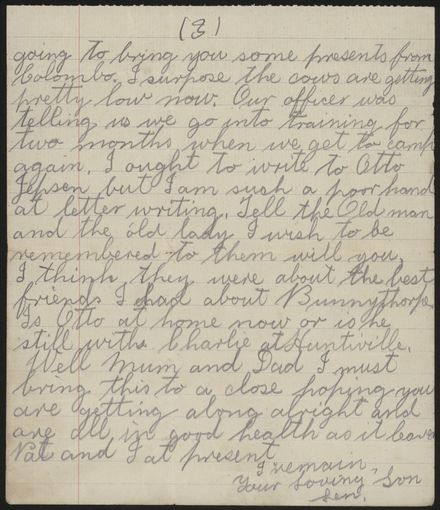 (3)
going to bring you some presents from
Colombo. I surpose the cows are getting
pretty low now. Our officer was
telling us we go into training for
two months when we get to camp
again. I ought to write to Otto
Jepsen but I am such a poor hand
at letter writing. Tell the Old man
and the old lady I wish to be
remembered to them will you.
I think they were about the best
friends I had about Bunnythorpe
Is Otto at home now or is he
still with Charlie at Huntiville.
Well Mum and Dad I must
bring this to a close hoping you
are getting along alright and
are all in good health as it leave
Pat and I at present
I remain,
Your Loving Son
Len.